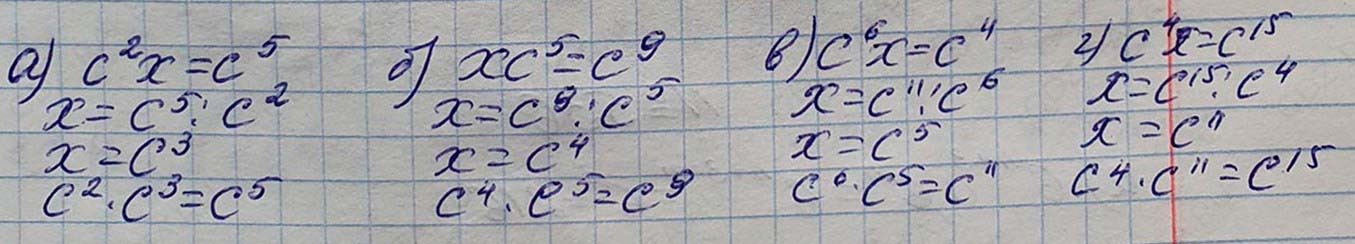 а) c²x=c⁵
x=c⁵:c²
x=c³
c²·c³=c⁵
б) xc⁵=c⁹
x=c⁹:c⁵
x=c⁴
c⁴·c⁵=c⁹
в) c⁶x=c⁴
x=c¹¹:c⁶
x=c⁵
c⁶·c⁵=c¹¹
г) c⁴x=c¹⁵
x=c¹⁵:c⁴
x=c¹¹
c⁴·c¹¹=c¹⁵